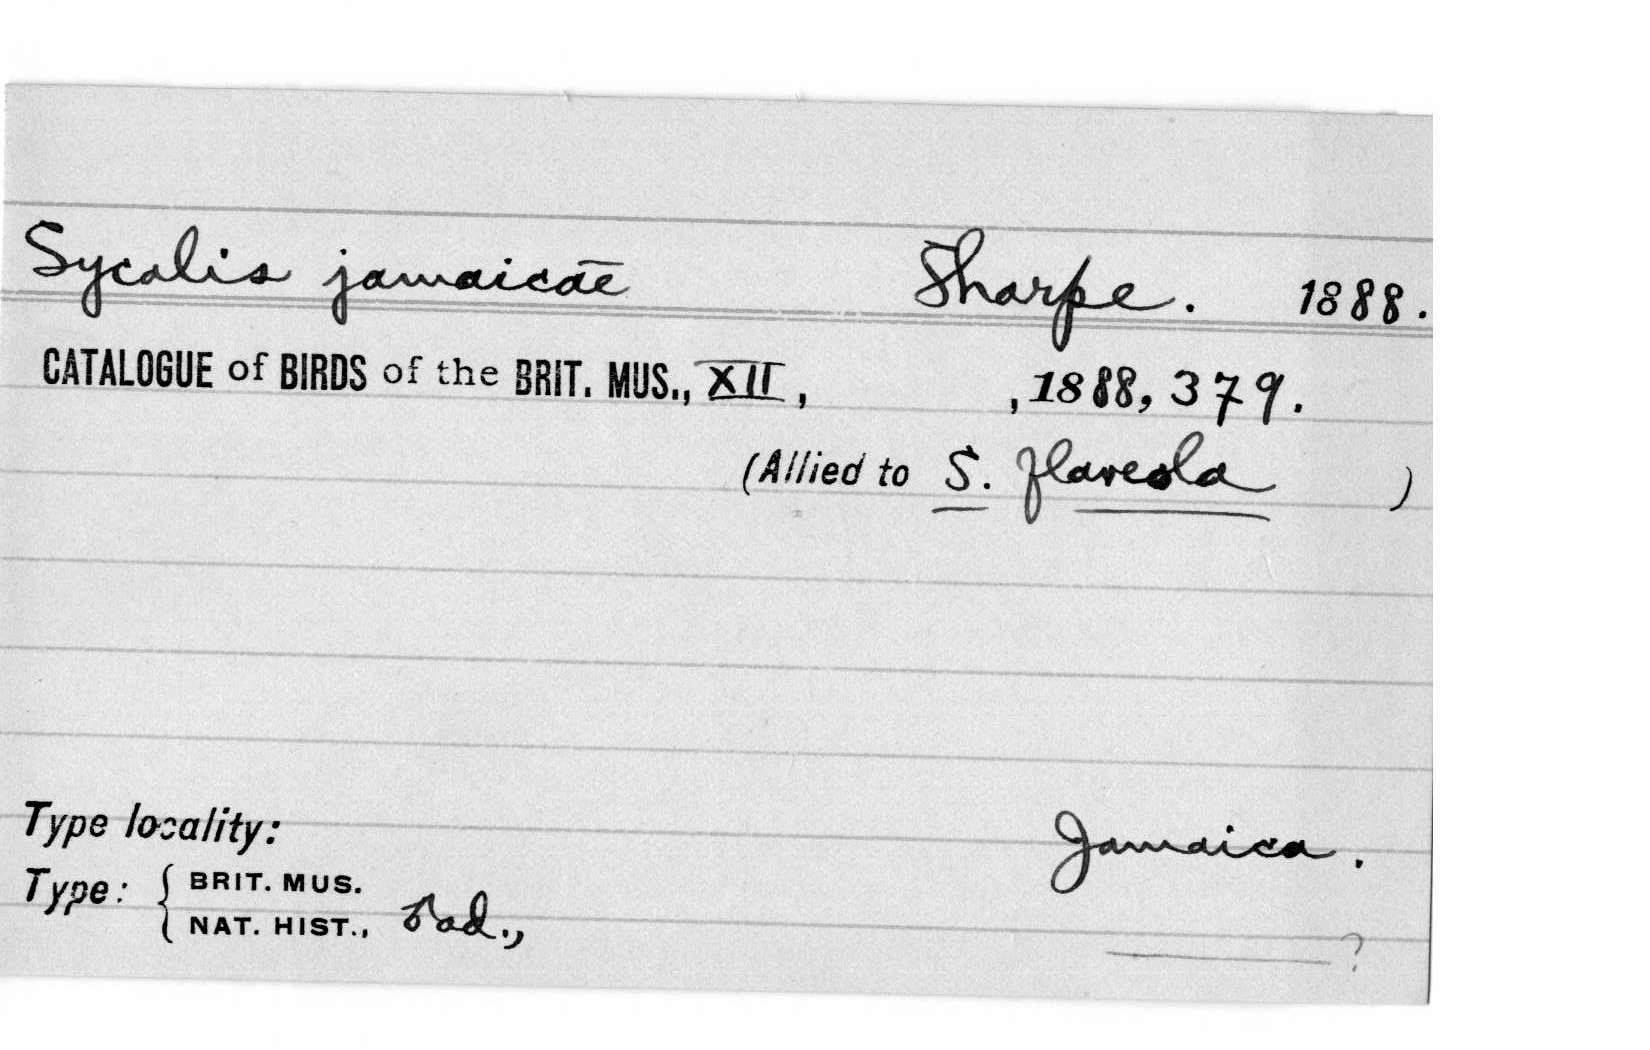 Sycalis jamaicae Sharpe. 1888.
CATALOGUE of BIRDS of the BRIT. MUS., XII, , 1888, 379.
(Allied to S. flaveola )
Type locality: Jamaica.
Type: { BRIT. MUS.
NAT. HIST., ad., ?